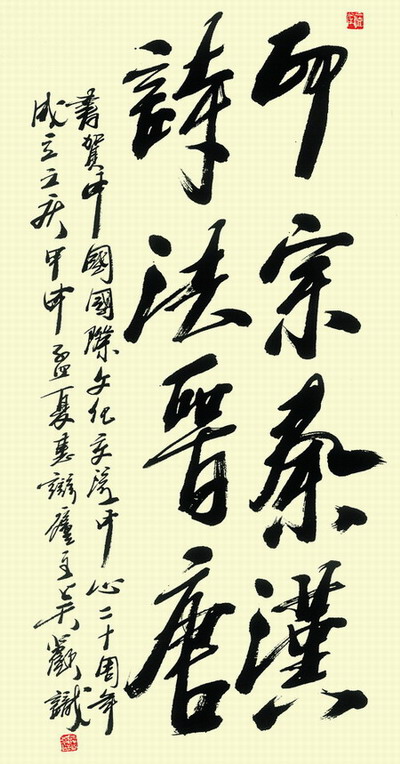 印宗秦漢
詩法晉唐
書賀中國國際文化交流中心二十周年
成立之庆甲申孟夏惠廬主吳識